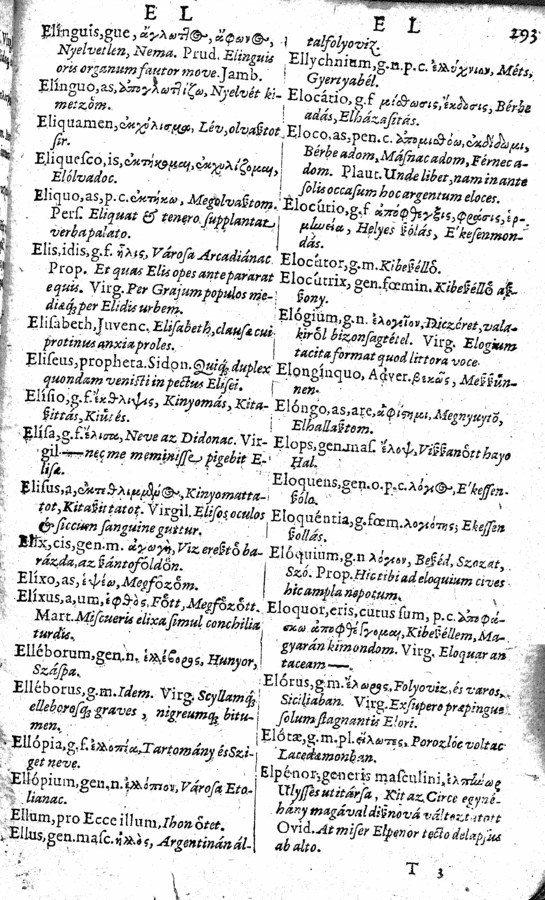 E L
E L
293
Elinguis, gue, ἄγλωττος, ἄφωνος,
Nyelvetlen, Nema. Prud. Elinguis
oris organum fautor move. Jamb.
Elinguo, as, ἀπογλωττίζω, Nyelvét ki-
metzöm.
Eliquamen, ἐκχύλισμα, Lév, olvaßtot
sir.
Eliquesco, is, ἐκτήκομαι, ἐκχυλίζομαι,
Elólvadoc.
Eliquo, as, p. c. ἐκτήκω, Megolvaßtom.
Pers. Eliquat & tenero supplantat
verba palato.
Elis, idis, g. f. ἦλις, Városa Arcadiánac
Prop. Et quas Elis opes ante pararat
equis. Virg. Per Grajum populos me-
diæq́; per Elidis urbem.
Elisabeth, Juvenc. Elisabeth, clausa cui
protinus anxia proles.
Eliseus, propheta. Sidon. Quiq́; duplex
quondam venisti in pectus Elisei.
Elisio, g. f. ἔκθλιψις, Kinyomás, Kita-
ßittás, Kiütés.
Elísa, g. f. ἔλισα, Neve az Didonac. Vir-
gil— nec me meminisse pigebit E-
lisæ.
Elisus, a, Kinyomatta-
tot, Kitaßittatot. Virgil. Elisos oculos
& siccum sanguine guttur.
Elix, cis, gen. m. ἀγωγὴ, Viz ereßtö ba-
rázda, az ßántoföldön.
Elíxo, as, ἑψέω, Megfözöm.
Elíxus, a, um, ἑφθὸς, Fött, Megfözött.
Mart. Miscueris elixa simul conchilia
turdis.
Elléborum, gen. n. ἑλλέβορος, Hunyor,
Szászpa.
Elléborus, g. m. Idem. Virg. Scyllamq́;
elleborosq́; graves, nigreumq́; bitu-
men.
Ellópia, g. f. ἐλλοπία, Tartomány és Szi-
get neve.
Ellópium, gen. n. ἐλλόπιον, Városa Eto-
lianac.
Ellum, pro Ecce illum, Ihon ötet.
Ellus, gen. masc. ἐλλὸς, Argentinán ál-
talfolyoviz.
Ellychnium, g. n. p. c. ἐλλύχνιον, Méts,
Gyertyabél.
Elocátio, g. f. μίσθωσις, ἔκδοσις, Bérbe
adás, Elházasitás.
Eloco, as, pen. c. ἀπομισθόω, ἐκδίδωμι,
Bérbe adom, Másnac adom, Férnec a-
dom. Plaut. Unde libet, nam in ante
solis occasum hoc argentum eloces.
Elocútio, g. f. ἀπόφθεγξις, φράσις, ἑρ-
μηνεία, Helyes ßólás, E'kesenmon-
dás.
Elocútor, g. m. Kibeßéllö.
Elocútrix, gen. fœmin. Kibeßéllö aß-
ßony.
Elógium, g. n. ἐλογεῖον, Diczéret, vala-
kiröl bizonsagtétel. Virg. Elogium
tacita format quod littora voce.
Elongínquo, Adver. Meßßün-
nen.
Elóngo, as, are, ἀφίστημι, Megnyuytö,
Elhallaßtom.
Elops, gen. mas. ἔλοψ, Vißßanött hayo
Hal.
Eloquens, gen. o. p. c. λόγιος, E'kessen-
ßólo.
Eloquéntia, g. fœm. λογιότης, Ekessen
ßollás.
Elóquium, g. n. λόγιον, Beßéd, Szozat,
Szó. Prop. Hic tibi ad eloquium cives
hic ampla nepotum.
Eloquor, eris, cutus sum, p. c. ἀποφά-
σκω ἀποφθέγγομαι, Kibeßéllem, Ma-
gyarán kimondom. Virg. Eloquar an
taceam—
Elórus, g. m. ἔλωρος. Folyoviz, és varos,
Siciliaban. Virg. Exsupero præpingue
solum stagnantis Elori.
Elótæ, g. m. pl. εἵλωτες, Porozloc voltac
Lacedæmonban.
Elpénor, generis masculini, ἐλπήνωρ
Ulysses uti társa, Kit az Circe egyné-
hány magával disnová változtatott
Ovid. At miser Elpenor tecto delapsus
ab alto.
T 3